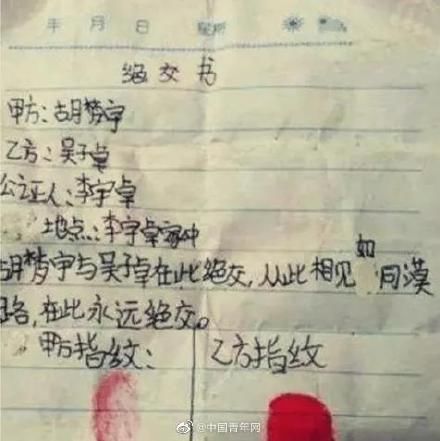 年 月 日 星期
绝交书
甲方:胡梦宇
乙方:吴子卓
公证人:李宇卓
地点:李宇卓家中
胡梦宇与吴子卓在此绝交,从此相见如同漠
路,在此永远绝交。
甲方指纹: 乙方指纹
@中国青年网